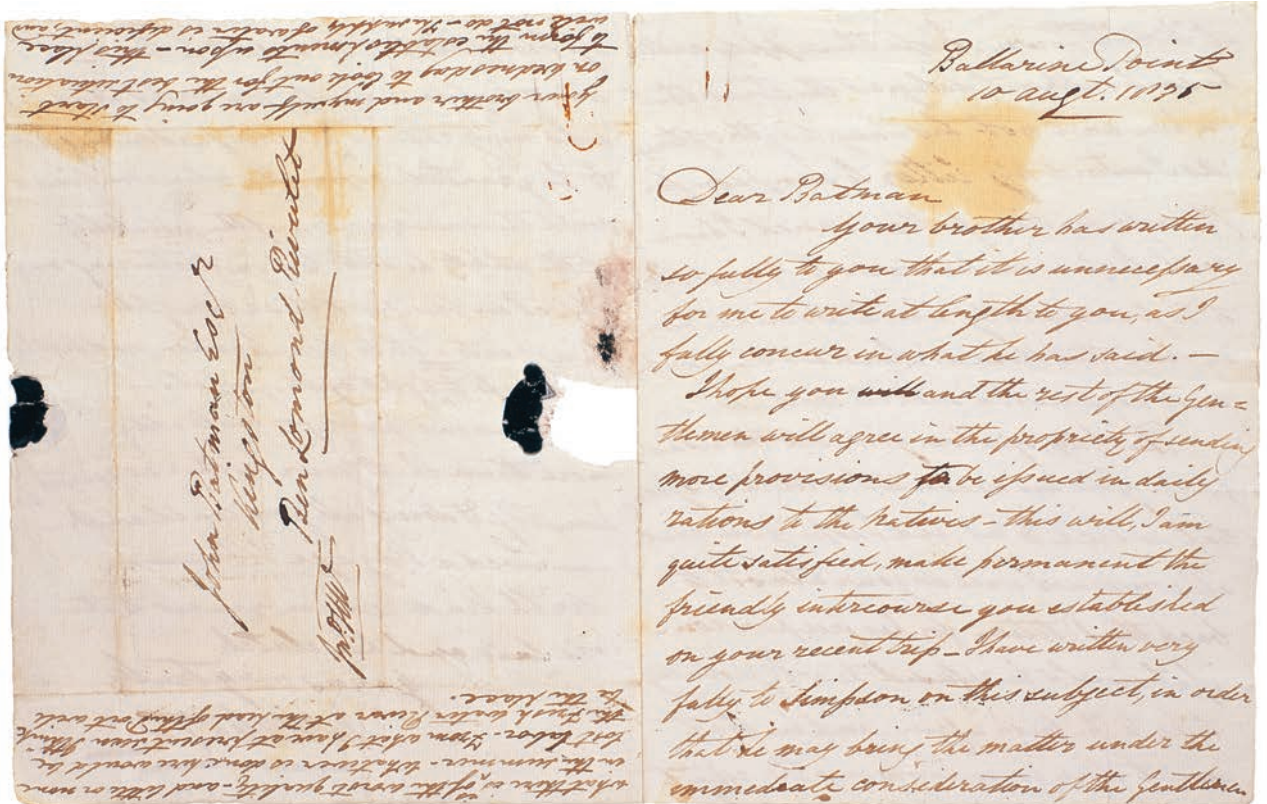 Ballarine Point
10 augt. 1835
Dear Batman
Your brother has written
so fully to you that it is unnecessary
for me to write at length to you, as I
fully concur in what he has said. —
I hope you will and the rest of the Gen=
tlemen will agree in the propriety of sending
more provisions to be issued in daily
rations to the natives – this will, I am
quite satisfied, make permanent the
friendly intercourse you established
on your recent trip – I have written very
fully to Simpson on this subject, in order
that he may bring the matter under the
immediate consideration of the Gentlemen
your brother and myself are going to start
on Wednesday to look out for the best situation
to form the establishments upon – this place
will not do – the supply of water is deficient and
what there is, is of the worst quality – and little or none
in the summer – whatever is done here would be
lost labor. From what I have at present seen I think
the fresh water River at the head of the Port will
be the place.
John Batman Esqr
Kingston
Ben Lomond Rivulet